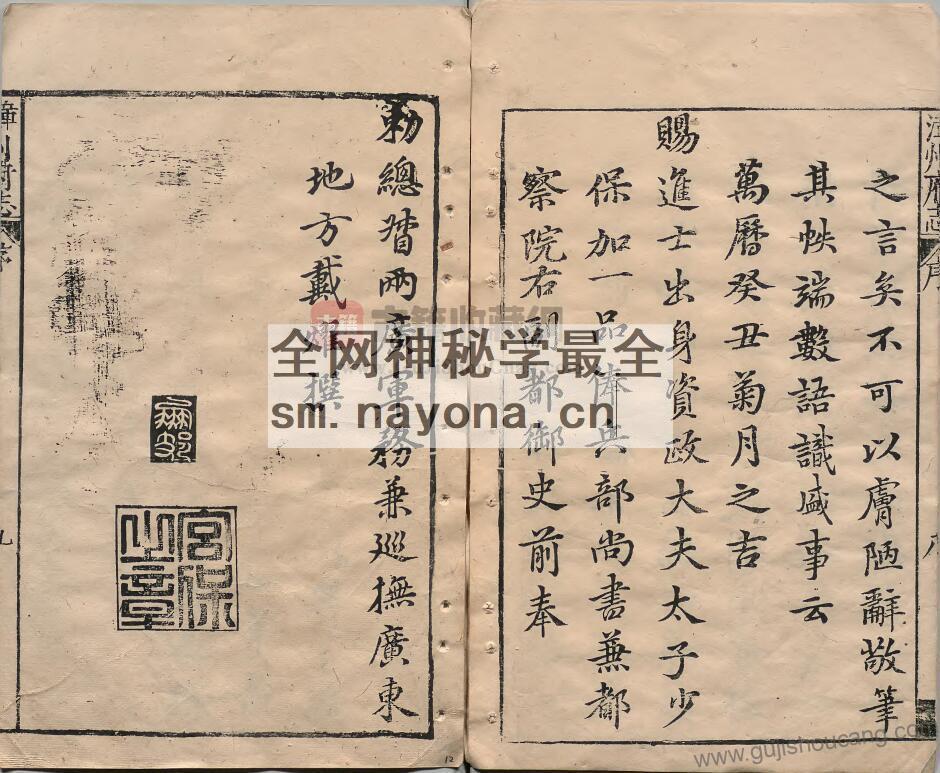 之言矣不可以膚陋辭敬筆
其帙端數語識盛事云
萬曆癸丑菊月之吉
賜進士出身資政大夫太子少
保加一品俸兵部尚書兼都
察院右副都御史前奉
勅總督兩廣軍務兼巡撫廣東
地方戴燿撰
宮保之章
漳州府志
序
八
漳州府志
序
九
全网神秘学最全
sm.nayona.cn
古籍收藏网
www.gujishoucang.com
12